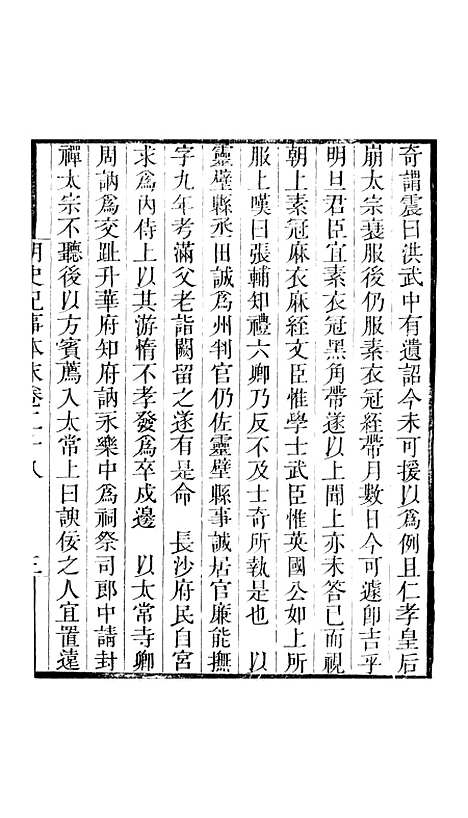 奇謂震曰洪武中有遺詔今未可援以爲例且仁孝皇后
崩太宗衰服後仍服素衣冠絰帶月數日今可遽即吉乎
明旦君臣宜素衣冠黑角帶遂以上聞上亦未答已而視
朝上素冠麻衣麻絰文臣惟學士武臣惟英國公如上所
服上嘆曰張輔知禮六卿乃反不及士奇所執是也　以
靈壁縣丞田誠爲州判官仍佐靈壁縣事誠居官廉能撫
字九年考滿父老詣闕留之遂有是命　長沙府民自宮
求爲內侍上以其游惰不孝發爲卒戍邊　以太常寺卿
周訥爲交趾升華府知府訥永樂中爲祠祭司郎中請封
禪太宗不聽後以方賓薦入太常上曰諛佞之人宜置遠
明史紀事本末卷二十八　三